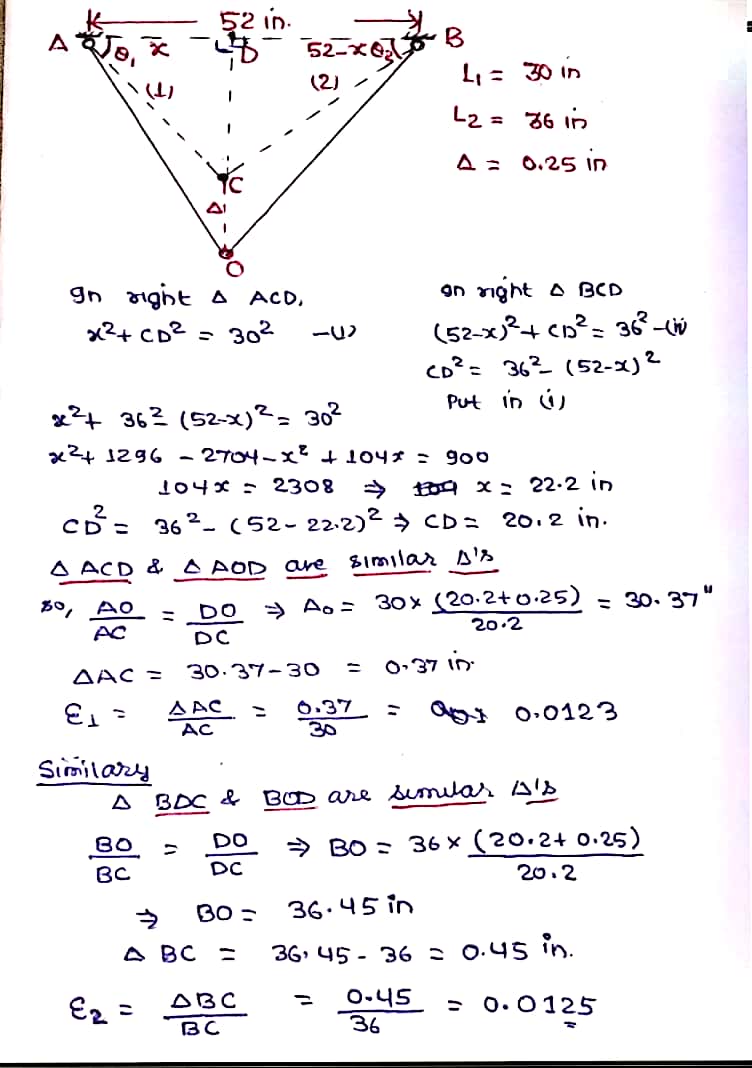 52 in.
A θ₁ x D 52-x θ₂ B
(1) (2)
L₁ = 30 in
L₂ = 36 in
Δ = 0.25 in
C
Δ
O
In right Δ ACD,
x²+ CD² = 30² -(i)
In right Δ BCD
(52-x)²+ CD² = 36² -(ii)
CD² = 36² - (52-x)²
Put in (i)
x²+ 36² - (52-x)² = 30²
x²+ 1296 - 2704 - x² + 104x = 900
104x = 2308 ⇒ x = 22.2 in
CD² = 36² - (52-22.2)² ⇒ CD = 20.2 in.
Δ ACD & Δ AOD are similar Δ's
so, AO/AC = DO/DC ⇒ Ao = 30 x (20.2+0.25)/20.2 = 30.37"
ΔAC = 30.37-30 = 0.37 in.
Ɛ₁ = ΔAC/AC = 0.37/30 = 0.0123
Similary
Δ BDC & BOD are similar Δ's
BO/BC = DO/DC ⇒ BO = 36 x (20.2+ 0.25)/20.2
⇒ BO = 36.45 in
Δ BC = 36.45 - 36 = 0.45 in.
Ɛ₂ = ΔBC/BC = 0.45/36 = 0.0125